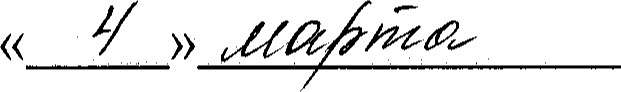 « 4 » марта